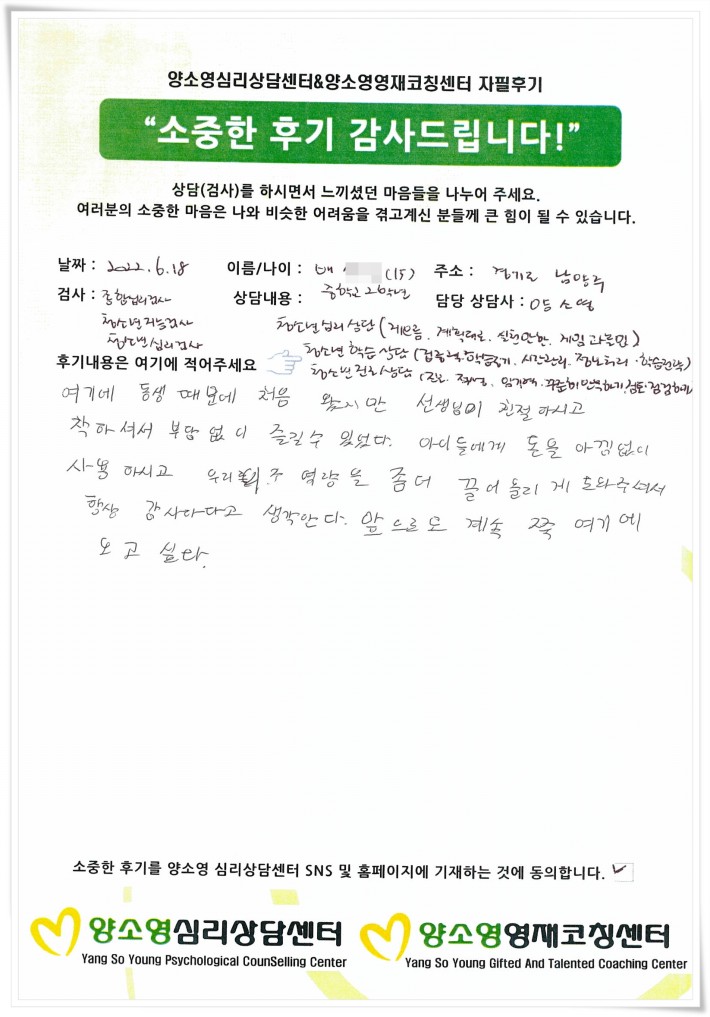 양소영심리상담센터&양소영영재코칭센터 자필후기
“소중한 후기 감사드립니다!”
상담(검사)를 하시면서 느끼셨던 마음들을 나누어 주세요.
여러분의 소중한 마음은 나와 비슷한 어려움을 겪고계신 분들께 큰 힘이 될 수 있습니다.
날짜 : 2022.6.18 이름/나이 : 배 (15) 주소 : 경기도 남양주
검사 : 종합심리검사 상담내용 : 중학교 2학년 담당 상담사 : 양소영
청소년지능검사 청소년심리상담 (게으름, 계획대로, 실천안함, 게임 과몰입)
청소년심리검사
후기내용은 여기에 적어주세요 청소년 학습 상담 (집중력, 학습동기, 시간관리, 정보처리, 학습전략)
청소년 진로상담 (진로, 적성, 암기력, 꾸준히 반복하기, 검토·점검하기)
여기에 동생 때문에 처음 왔지만 선생님이 친절하시고
착하셔서 부담 없이 즐길수 있었다. 아이들에게 돈을 아낌없이
사용 하시고 우리 역량을 좀더 끌어 올리게 도와주셔서
항상 감사하다고 생각한다. 앞으로도 계속 쭉 여기에
오고 싶다.
소중한 후기를 양소영 심리상담센터 SNS 및 홈페이지에 기재하는 것에 동의합니다. ✓
양소영심리상담센터 양소영영재코칭센터
Yang So Young Psychological CounSelling Center Yang So Young Gifted And Talented Coaching Center